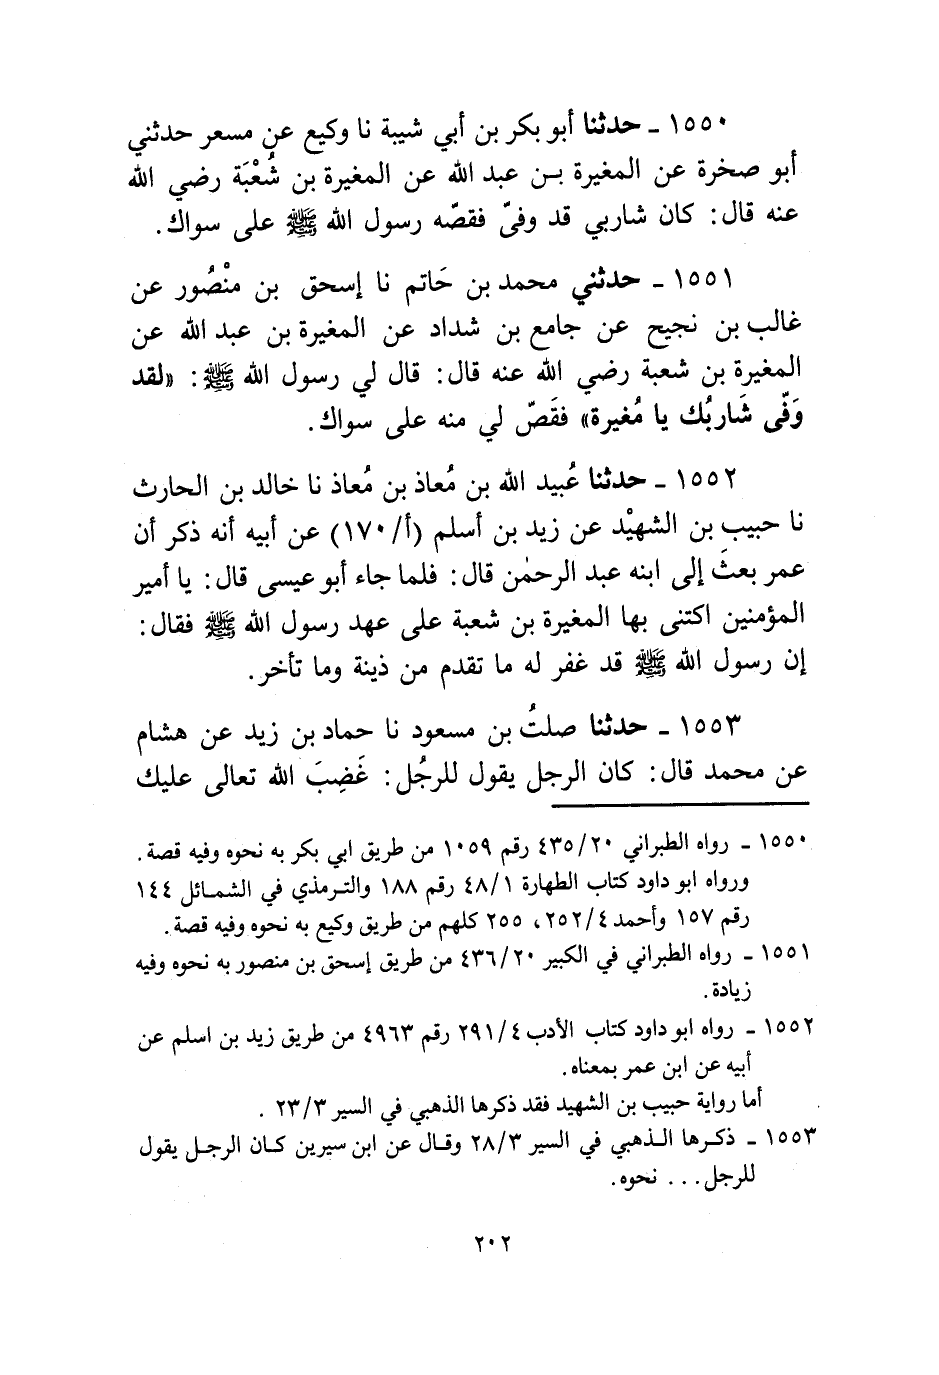 ١٥٥٠ ـ حدثنا أبو بكر بن أبي شيبة نا وكيع عن مسعر حدثني
أبو صخرة عن المغيرة بـن عبد الله عن المغيرة بن شُعْبَة رضي الله
عنه قال: كان شاربي قد وفىّ فقصّه رسول الله ﷺ على سواك.
١٥٥١ ـ حدثني محمد بن حَاتم نا إسحق بن منْصُور عن
غالب بن نجيح عن جامع بن شداد عن المغيرة بن عبد الله عن
المغيرة بن شعبة رضي الله عنه قال: قال لي رسول الله ﷺ: «لقد
وَفّى شَاربُك يا مُغيرة» فقَصّ لي منه على سواك.
١٥٥٢ ـ حدثنا عُبيد الله بن مُعاذ بن مُعاذ نا خالد بن الحارث
نا حبيب بن الشهيْد عن زيد بن أسلم (أ/١٧٠) عن أبيه أنه ذكر أن
عمر بعثَ إلى ابنه عبد الرحمٰن قال: فلما جاء أبو عيسى قال: يا أمير
المؤمنين اكتنى بها المغيرة بن شعبة على عهد رسول الله ﷺ فقال:
إن رسول الله ﷺ قد غفر له ما تقدم من ذينة وما تأخر.
١٥٥٣ ـ حدثنا صلتُ بن مسعود نا حماد بن زيد عن هشام
عن محمد قال: كان الرجل يقول للرجُل: غَضِبَ الله تعالى عليك
١٥٥٠ ـ رواه الطبراني ٤٣٥/٢٠ رقم ١٠٥٩ من طريق ابي بكر به نحوه وفيه قصة.
ورواه ابو داود كتاب الطهارة ٤٨/١ رقم ١٨٨ والترمذي في الشمائل ١٤٤
رقم ١٥٧ وأحمد ٢٥٢/٤، ٢٥٥ كلهم من طريق وكيع به نحوه وفيه قصة.
١٥٥١ ـ رواه الطبراني في الكبير ٤٣٦/٢٠ من طريق إسحق بن منصور به نحوه وفيه
زيادة.
١٥٥٢ ـ رواه ابو داود كتاب الأدب ٢٩١/٤ رقم ٤٩٦٣ من طريق زيد بن اسلم عن
أبيه عن ابن عمر بمعناه.
أما رواية حبيب بن الشهيد فقد ذكرها الذهبي في السير ٢٣/٣ .
١٥٥٣ ـ ذكرها الذهبي في السير ٢٨/٣ وقال عن ابن سيرين كان الرجل يقول
للرجل... نحوه.
٢٠٢